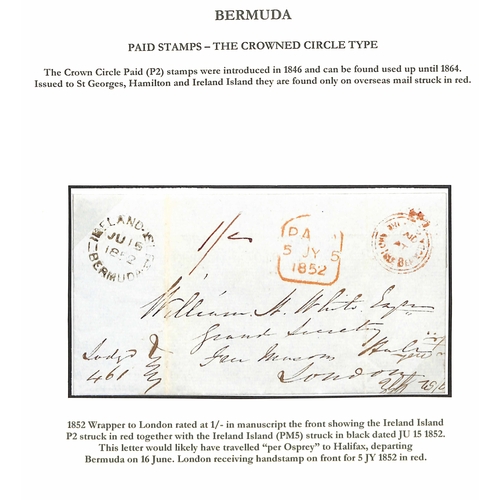 BERMUDA
PAID STAMPS – THE CROWNED CIRCLE TYPE
The Crown Circle Paid (P2) stamps were introduced in 1846 and can be found used up until 1864.
Issued to St Georges, Hamilton and Ireland Island they are found only on overseas mail struck in red.
IRELAND ISLE
JU 15
1852
BERMUDA
1/-
PAID
5 JY 5
1852
William H. White Esqre
Grand Secretary
Free Mason
London
Lodge
461
1852 Wrapper to London rated at 1/- in manuscript the front showing the Ireland Island
P2 struck in red together with the Ireland Island (PM5) struck in black dated JU 15 1852.
This letter would likely have travelled "per Osprey" to Halifax, departing
Bermuda on 16 June. London receiving handstamp on front for 5 JY 1852 in red.